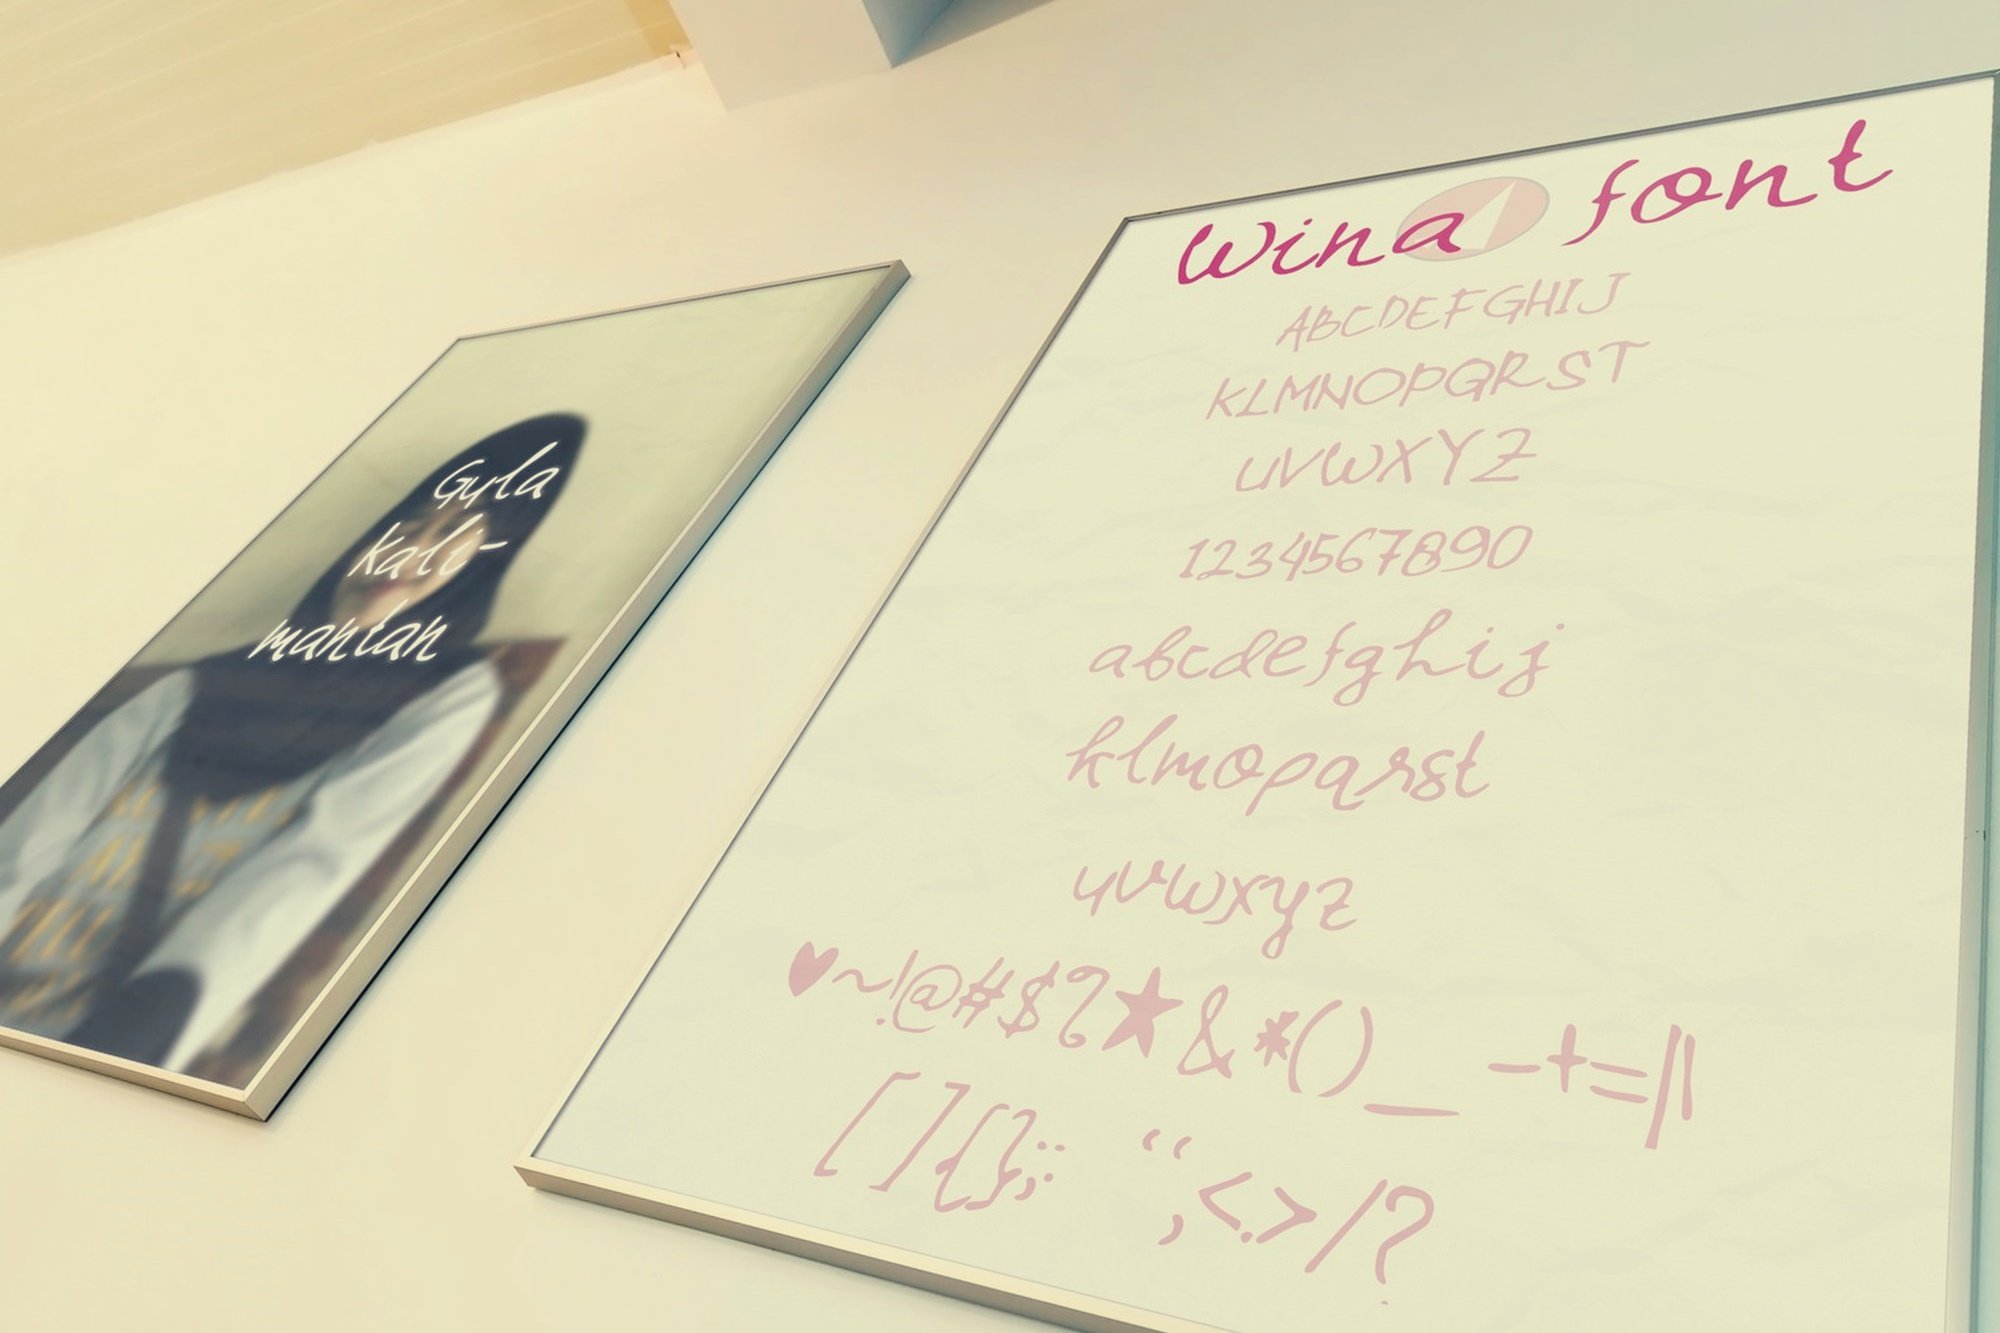 Gyla
kali-
mantan
Wina font
ABCDEFGHIJ
KLMNOPQRST
UVWXYZ
1234567890
abcdefghij
klmopqrst
uvwxyz
♥~!@#$?★&*()_ -+=/|
[]{};: “,<.>/?